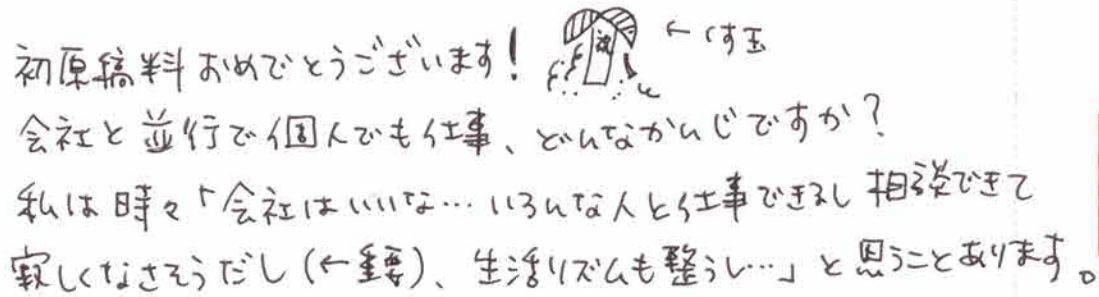 初原稿料おめでとうございます! ←くす玉
会社と並行で個人でも仕事、どんなかんじですか?
私は時々「会社はいいな…いろんな人と仕事できるし相談できて
寂しくなさそうだし(←重要)、生活リズムも整うし…」と思うことあります。